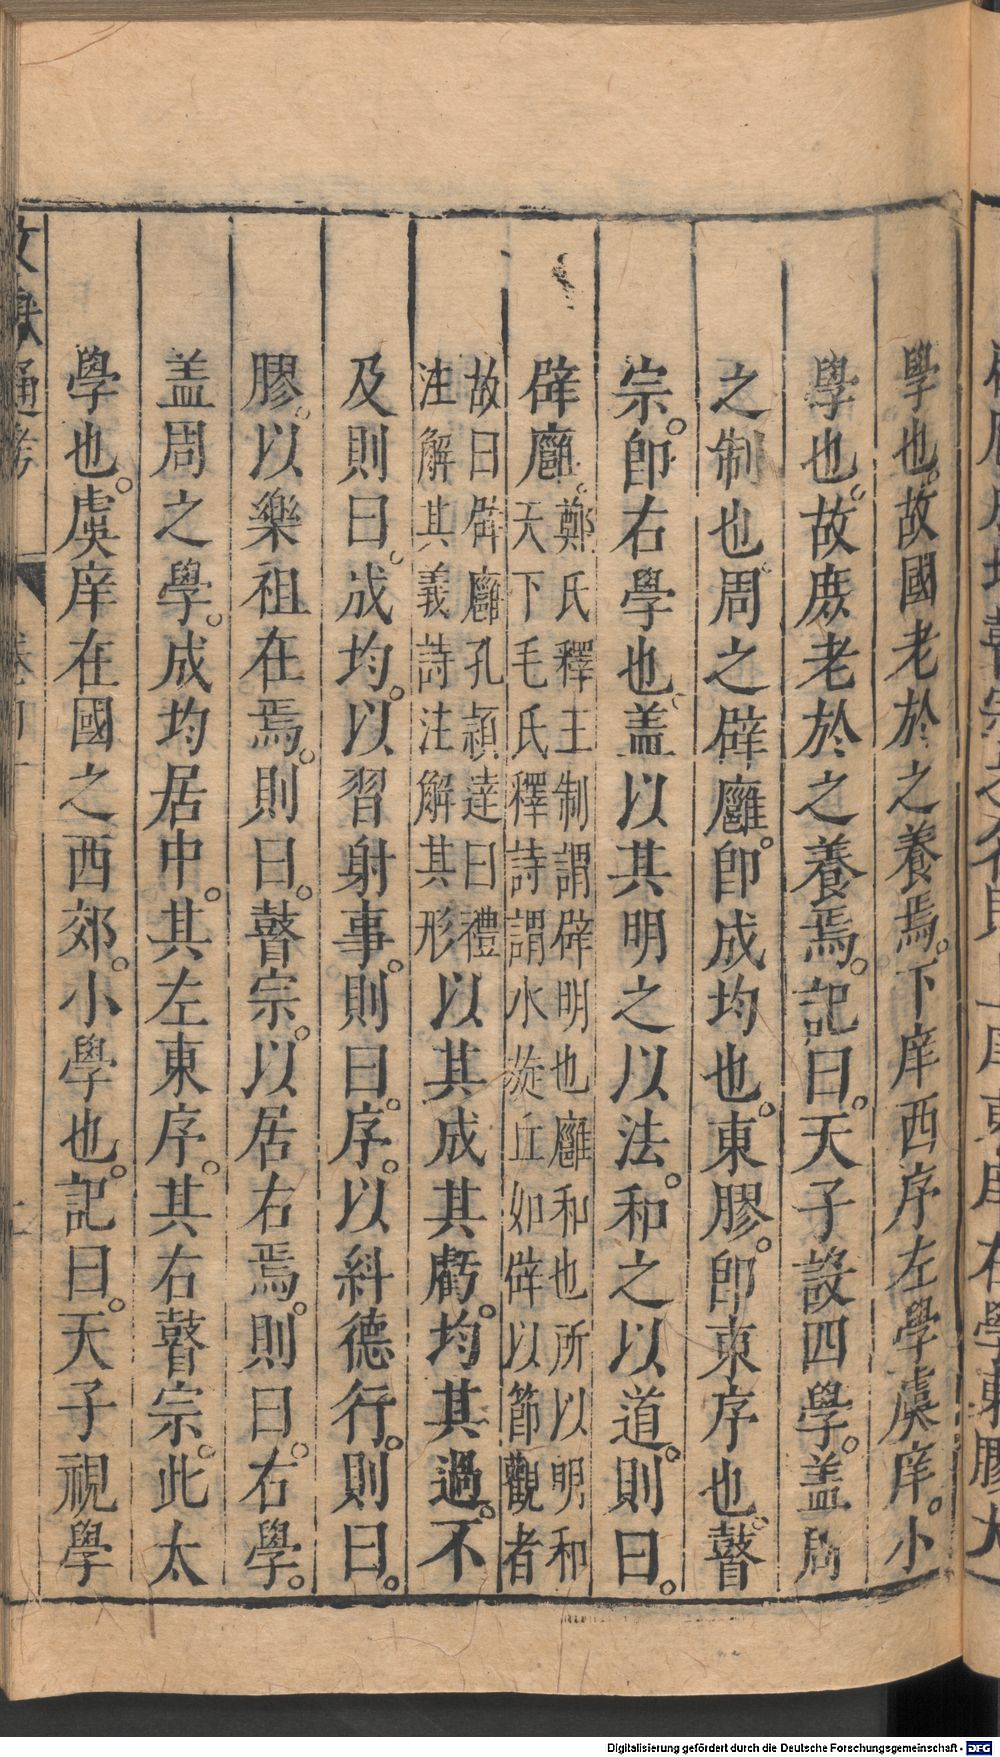 學也。故國老於之養焉。下庠西序左學虞庠。小
學也。故庶老於之養焉。記曰。天子設四學。盖周
之制也。周之辟廱。卽成均也。東膠。卽東序也。瞽
宗。卽右學也。盖以其明之以法。和之以道。則曰。
辟廱。鄭氏釋王制謂辟明也廱和也所以明和
天下毛氏釋詩謂水旋丘如辟以節觀者
故曰辟廱孔頴逹曰禮
注解其義詩注解其形以其成其虧。均其過。不
及則曰。成均。以習射事。則曰。序。以糾德行。則曰。
膠。以樂祖在焉。則曰。瞽宗。以居右焉。則曰。右學。
盖周之學。成均居中。其左東序。其右瞽宗。此太
學也。虞庠在國之西郊。小學也。記曰。天子視學
通考
Digitalisierung gefördert durch die Deutsche Forschungsgemeinschaft - DFG